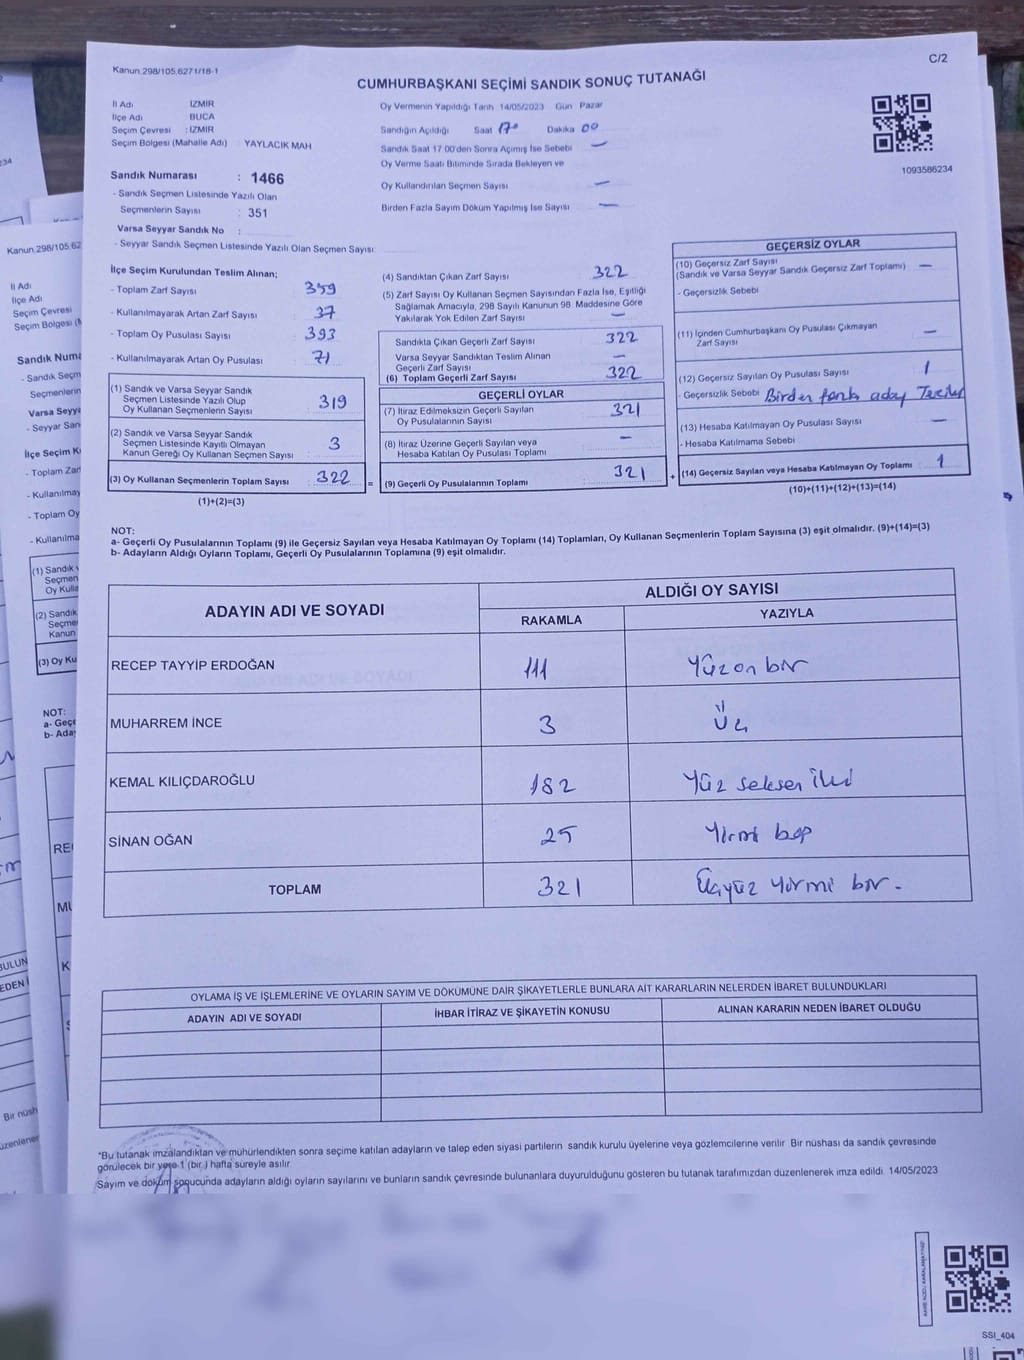 Kanun 298/105,6271/18-1
C/2
CUMHURBAŞKANI SEÇİMİ SANDIK SONUÇ TUTANAĞI
İl Adı İZMİR
İlçe Adı BUCA
Seçim Çevresi : İZMİR
Seçim Bölgesi (Mahalle Adı) YAYLACIK MAH
Oy Vermenin Yapıldığı Tarih 14/05/2023 Gün Pazar
Sandığın Açıldığı Saat 17 Dakika 00
Sandık Saat 17 00'den Sonra Açılmış İse Sebebi —
Oy Verme Saati Bitiminde Sırada Bekleyen ve
Oy Kullandırılan Seçmen Sayısı —
Birden Fazla Sayım Döküm Yapılmış İse Sayısı —
1093586234
Sandık Numarası : 1466
- Sandık Seçmen Listesinde Yazılı Olan
Seçmenlerin Sayısı : 351
Varsa Seyyar Sandık No :
- Seyyar Sandık Seçmen Listesinde Yazılı Olan Seçmen Sayısı:
İlçe Seçim Kurulundan Teslim Alınan;
- Toplam Zarf Sayısı : 359
- Kullanılmayarak Artan Zarf Sayısı : 37
- Toplam Oy Pusulası Sayısı : 393
- Kullanılmayarak Artan Oy Pusulası : 71
(1) Sandık ve Varsa Seyyar Sandık
Seçmen Listesinde Yazılı Olup
Oy Kullanan Seçmenlerin Sayısı : 319
(2) Sandık ve Varsa Seyyar Sandık
Seçmen Listesinde Kayıtlı Olmayan
Kanun Gereği Oy Kullanan Seçmen Sayısı : 3
(3) Oy Kullanan Seçmenlerin Toplam Sayısı : 322
(1)+(2)=(3)
(4) Sandıktan Çıkan Zarf Sayısı 322
(5) Zarf Sayısı Oy Kullanan Seçmen Sayısından Fazla İse, Eşitliği
Sağlamak Amacıyla, 298 Sayılı Kanunun 98. Maddesine Göre
Yakılarak Yok Edilen Zarf Sayısı —
Sandıkta Çıkan Geçerli Zarf Sayısı 322
Varsa Seyyar Sandıktan Teslim Alınan
Geçerli Zarf Sayısı —
(6) Toplam Geçerli Zarf Sayısı 322
GEÇERLİ OYLAR
(7) İtiraz Edilmeksizin Geçerli Sayılan
Oy Pusulalarının Sayısı 321
(8) İtiraz Üzerine Geçerli Sayılan veya
Hesaba Katılan Oy Pusulası Toplamı —
= (9) Geçerli Oy Pusulalarının Toplamı 321
GEÇERSİZ OYLAR
(10) Geçersiz Zarf Sayısı
(Sandık ve Varsa Seyyar Sandık Geçersiz Zarf Toplamı) —
- Geçersizlik Sebebi
(11) İçinden Cumhurbaşkanı Oy Pusulası Çıkmayan
Zarf Sayısı —
(12) Geçersiz Sayılan Oy Pusulası Sayısı 1
- Geçersizlik Sebebi Birden fazla aday
(13) Hesaba Katılmayan Oy Pusulası Sayısı —
- Hesaba Katılmama Sebebi
+ (14) Geçersiz Sayılan veya Hesaba Katılmayan Oy Toplamı 1
(10)+(11)+(12)+(13)=(14)
NOT:
a- Geçerli Oy Pusulalarının Toplamı (9) ile Geçersiz Sayılan veya Hesaba Katılmayan Oy Toplamı (14) Toplamları, Oy Kullanan Seçmenlerin Toplam Sayısına (3) eşit olmalıdır. (9)+(14)=(3)
b- Adayların Aldığı Oyların Toplamı, Geçerli Oy Pusulalarının Toplamına (9) eşit olmalıdır.
ADAYIN ADI VE SOYADI
ALDIĞI OY SAYISI
RAKAMLA YAZIYLA
RECEP TAYYİP ERDOĞAN 111 Yüz on bir
MUHARREM İNCE 3 Üç
KEMAL KILIÇDAROĞLU 182 Yüz seksen iki
SİNAN OĞAN 25 Yirmi beş
TOPLAM 321 Üçyüz yirmi bir.
OYLAMA İŞ VE İŞLEMLERİNE VE OYLARIN SAYIM VE DÖKÜMÜNE DAİR ŞİKAYETLERLE BUNLARA AİT KARARLARIN NELERDEN İBARET BULUNDUKLARI
ADAYIN ADI VE SOYADI İHBAR İTİRAZ VE ŞİKAYETİN KONUSU ALINAN KARARIN NEDEN İBARET OLDUĞU
*Bu tutanak imzalandıktan ve mühürlendikten sonra seçime katılan adayların ve talep eden siyasi partilerin sandık kurulu üyelerine veya gözlemcilerine verilir Bir nüshası da sandık çevresinde
görülecek bir yere 1 (bir ) hafta süreyle asılır.
Sayım ve döküm sonucunda adayların aldığı oyların sayılarını ve bunların sandık çevresinde bulunanlara duyurulduğunu gösteren bu tutanak tarafımızdan düzenlenerek imza edildi. 14/05/2023
SSI_404